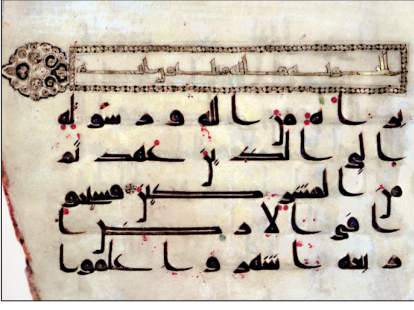 براة من الله ورسوله
الى الذين عهدتم
من المشركين فسيحو
ا في الارض ا
ربعة اشهر واعلموا